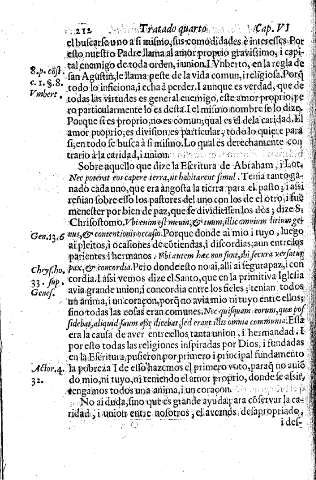 212 Tratado quarto Cap. VI
el buscarse uno a si mismo, sus comodidades è interesses. Por
esto nuestro Padre llama al amor proprio gravissimo, i capi-
8. p. cõst. tal enemigo de toda orden, i union. I Vmberto, en la regla de
c. 1. §. 8. san Agustin, le llama peste de la vida comun, i religiosa. Porq̃
Vmbert. todo lo inficiona, i echa à perder. I aunque es verdad, que de
todas las virtudes es general enemigo, este amor proprio, pe-
ro particularmente lo es desta. I el mismo nombre se lo dize.
Porque si es proprio, no es comun, qual es el dela caridad. El
amor proprio, es division, es particular, todo lo quiere para
si, en todo se busca à si mismo. Lo qual es derechamente con-
trario à la caridad, i union.
Sobre aquello que dize la Escritura de Abraham, i Lot.
Nec poterat eos capere terra, ut habitarent simul. Tenia tanto ga-
nado cada uno, que era angosta la tierra para el pasto; i assi
reñian sobre esso los pastores del uno con los de el otro, i fue
menester por bien de paz, que se dividiessen los dos; dize S.
Chrisostomo. Vbi enim est meum, & tuum, illic omnium litium ge-
Gen. 13. 6 nus, & contentionis occasio. Porque donde ai mio i tuyo, luego
ai pleitos, i ocasiones de cõtiendas, i discordias, aun entre los
parientes i hermanos. Vbi autem hæc non sunt, ibi secura versatur
Chryso. ho. pax, & concordia. Pero donde esto no ai, alli ai segura paz, i con-
33. sup. cordia. I assi vemos dize el Santo, que en la primitiva Iglesia
Genes. avia grande union, i concordia entre los fieles; tenian todos
un anima, i un coraçon, parq̃ no avia mio ni tuyo entre ellos;
sino todas las cosas eran comunes. Nec quisquam eorum, quæ pos
sidebat, aliquid suum esse dicebat, sed erant illis omnia communia. Esta
era la causa de aver entre ellos tanta union, i hermandad. I
por esto todas las religiones inspiradas por Dios, i fundadas
en la Escritura, pusieron por primero i principal fundamento
Actor. 4. la pobreza I de esso hazemos el primero voto, paraq̃ no aviẽ
32. do mio, ni tuyo, ni teniendo el amor proprio, donde se asir,
tengamos todos una anima, i un coraçon.
No ai duda, sino que es grande ayuda, para cõservar la ca-
ridad, i union entre nosotros, el avernos desapropriado,
i des-